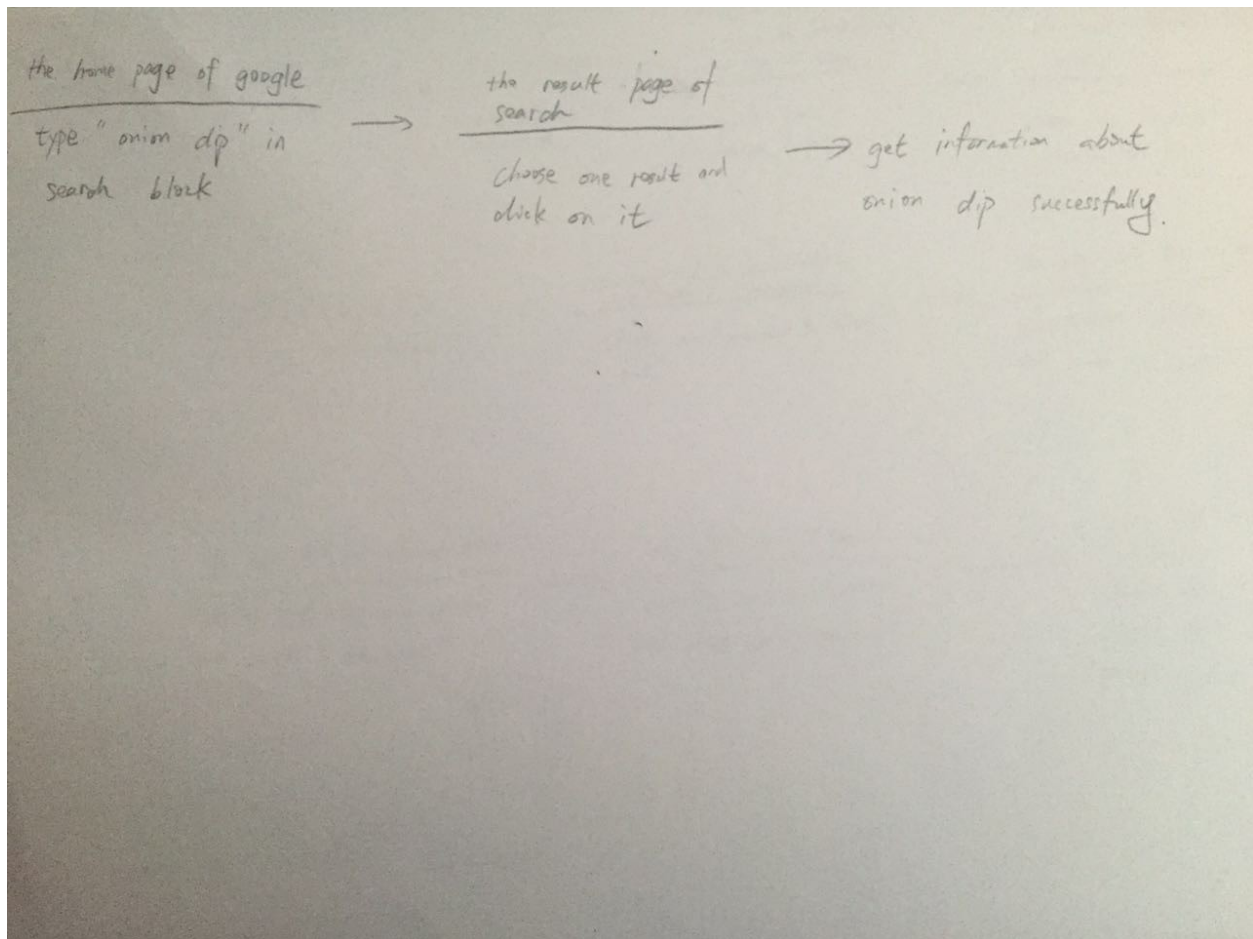 the home page of google
type "onion dip" in
search block
→
the result page of
search
choose one result and
click on it
→ get information about
onion dip successfully.